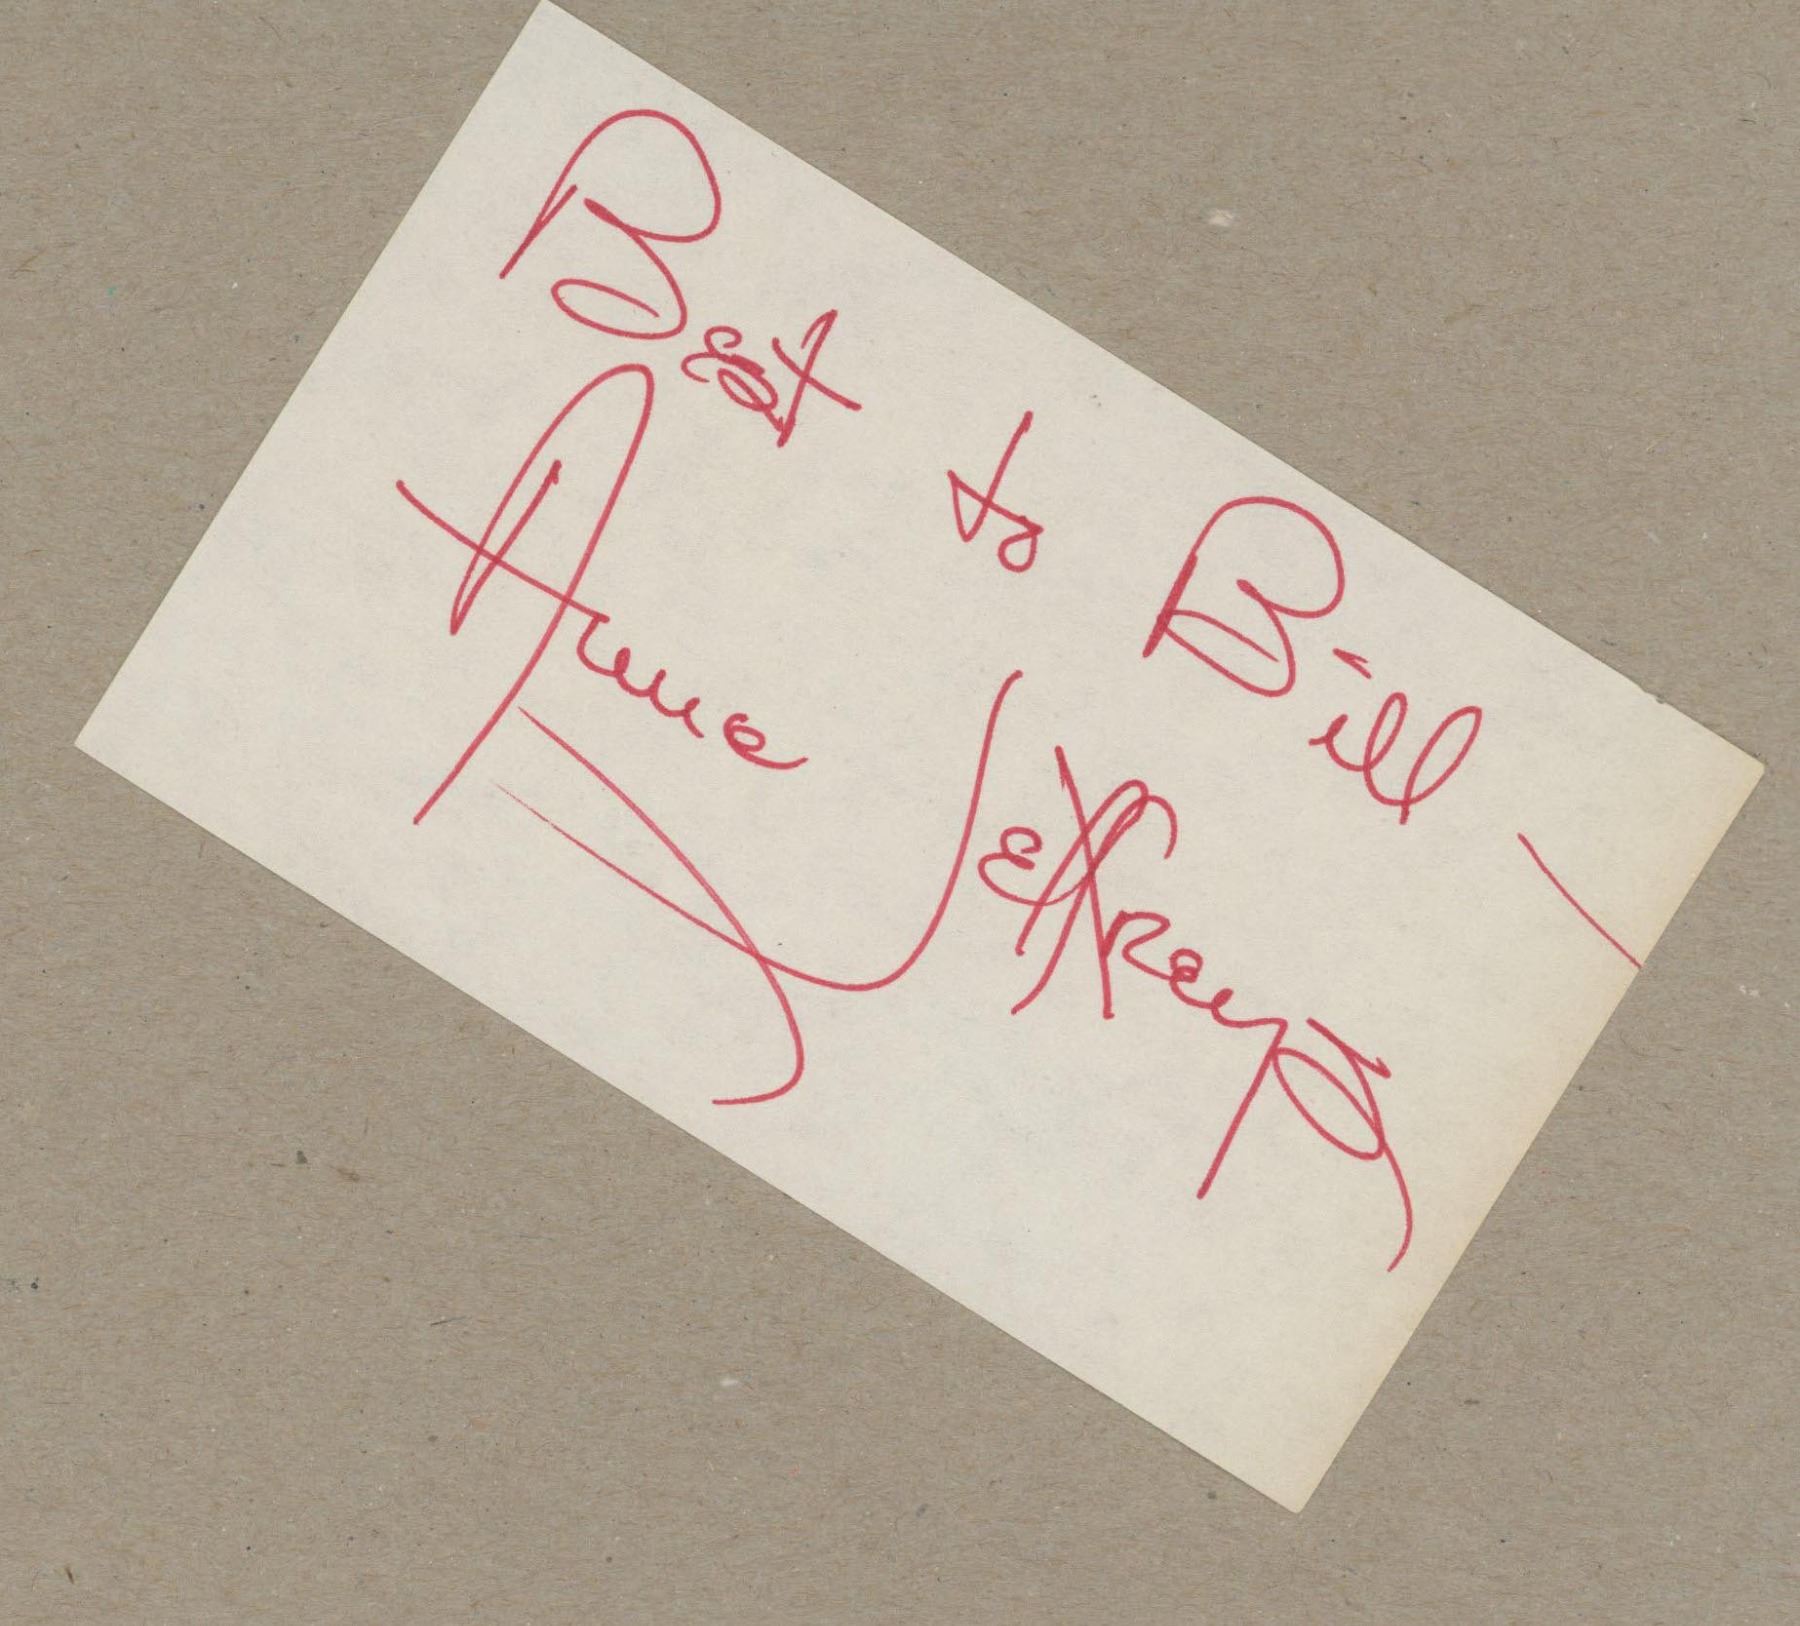 Best to Bill —
Anne Jeffreys